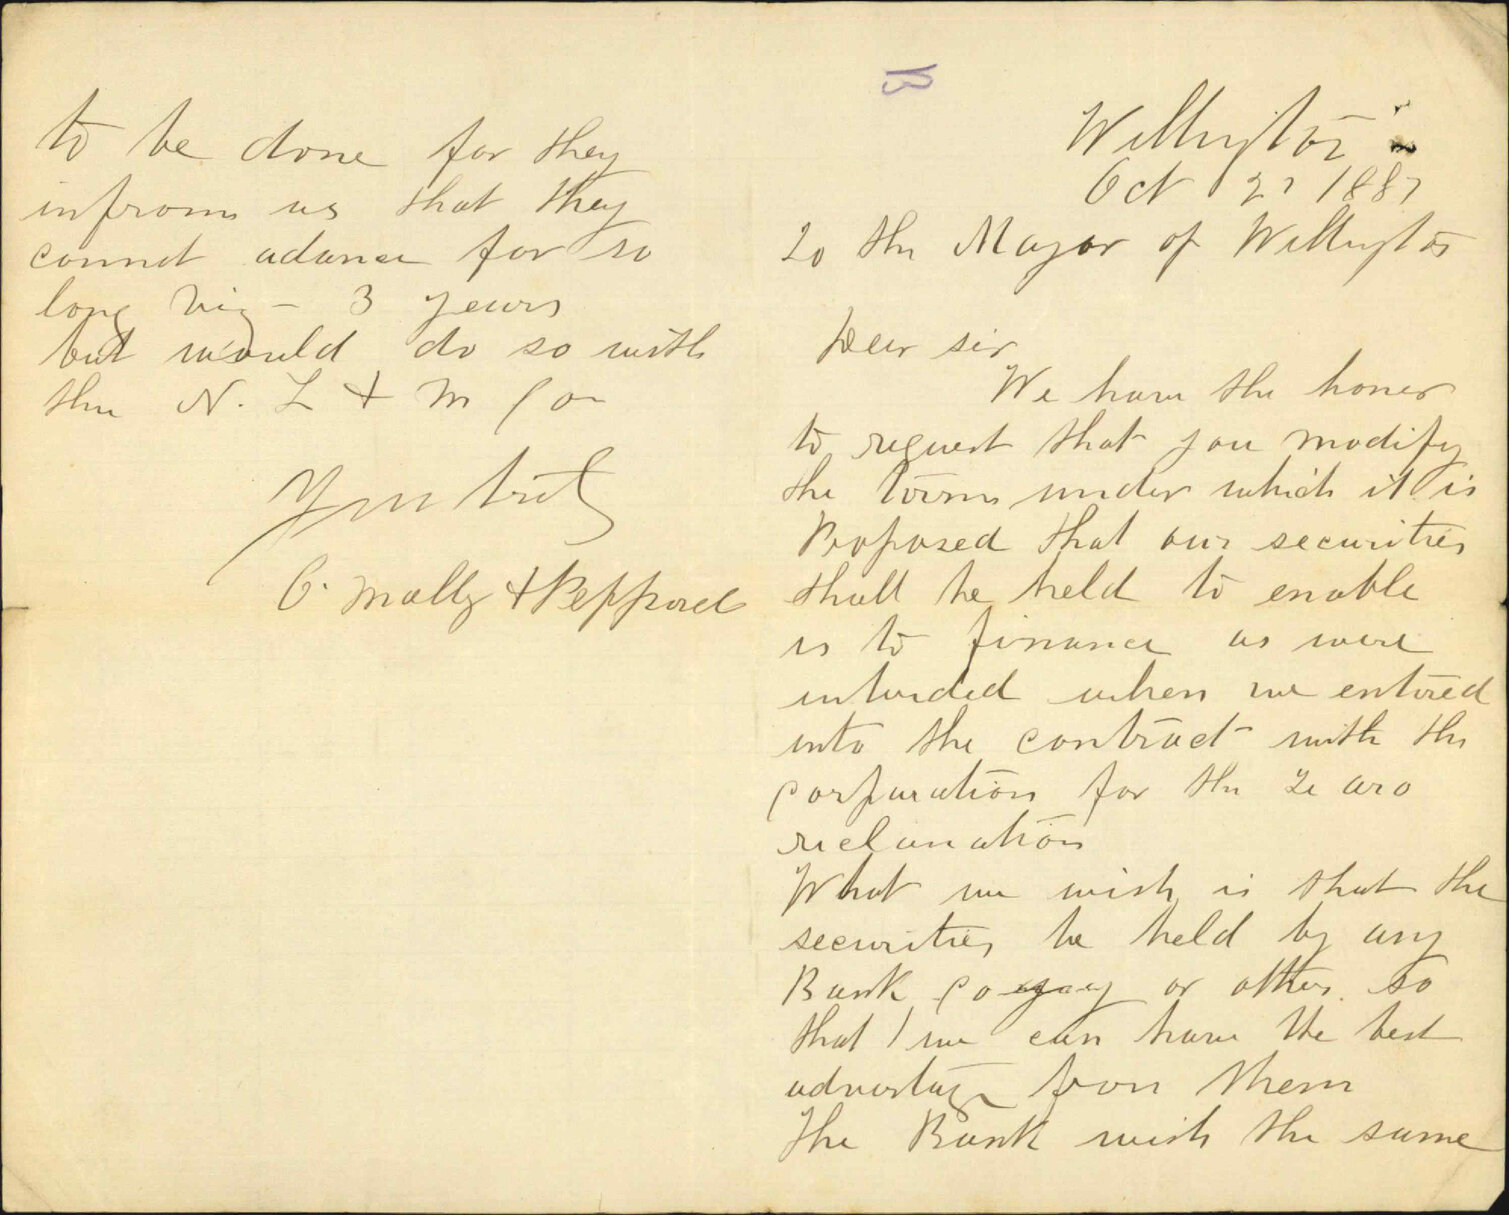 B
Wellington
Oct 27 1887
To the Mayor of Wellington
Dear sir
We have the honer
to request that you modify
the terms under which it is
Proposed that our securities
shall be held to enable
us to finance as were
intended when we entered
into the contract with the
corporation for the Te aro
reclamation
What we wish is that the
securities be held by any
Bank Co or other so
that we can have the best
advantage from them
The Bank wish the same
to be done for they
infrom us that they
connot advance for so
long viz - 3 years
but would do so with
the N. L & M Co
Your truly
O. Mally & Peppard